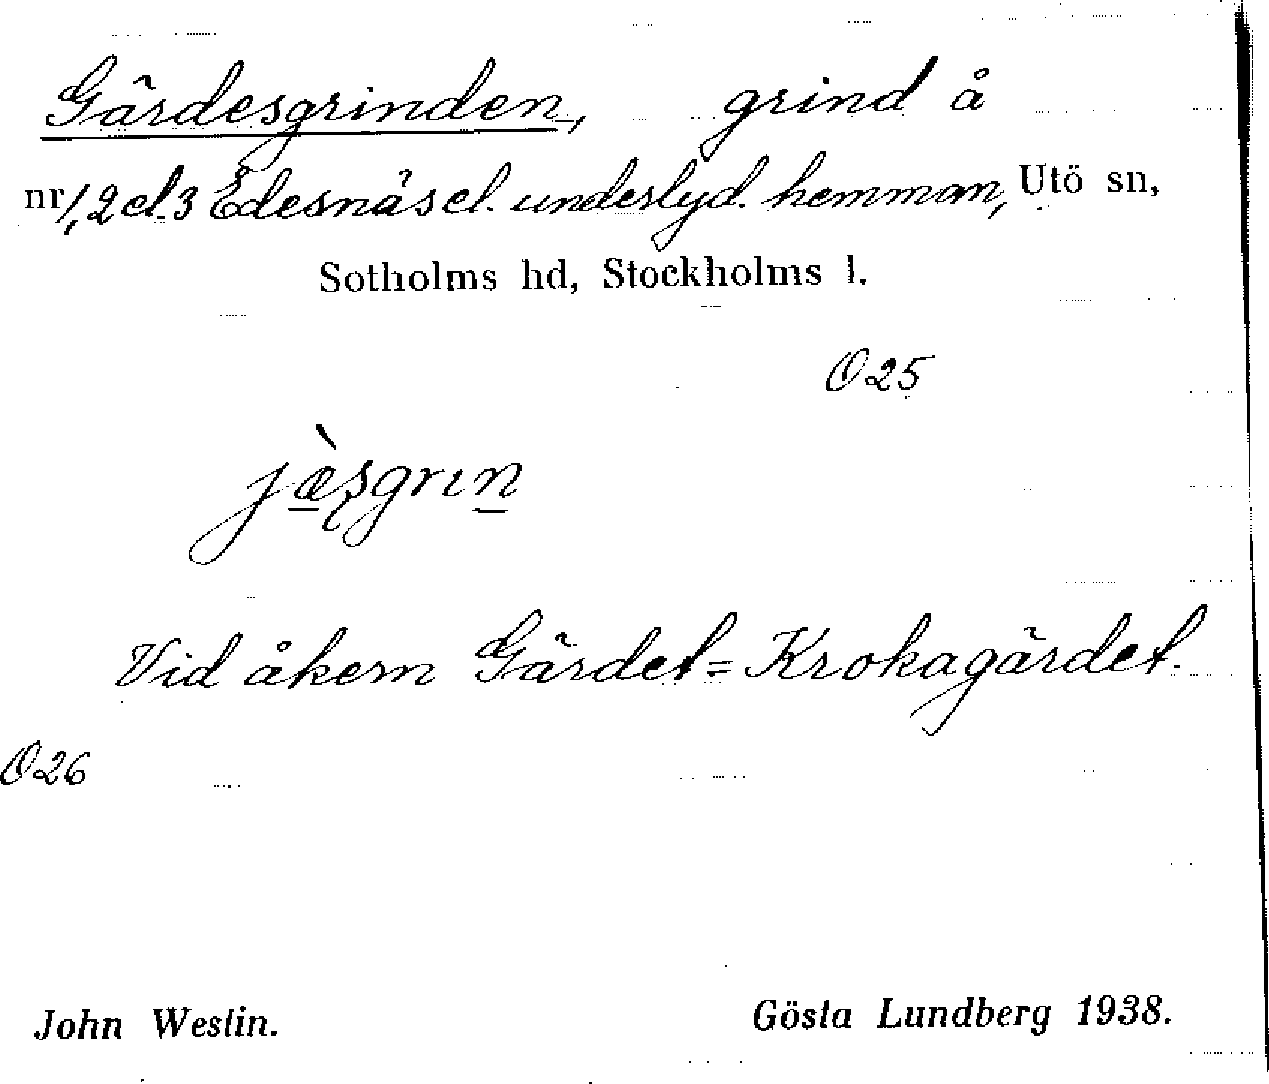 Gärdesgrinden, grind å
nr 1, 2 el. 3 Edesnäs el. underlyd. hemman, Utö sn,
Sotholms hd, Stockholms l.
O25
jæ̀ṣgrɪn
Vid åkern Gärdet = Krokagärdet.
O26
John Westin. Gösta Lundberg 1938.